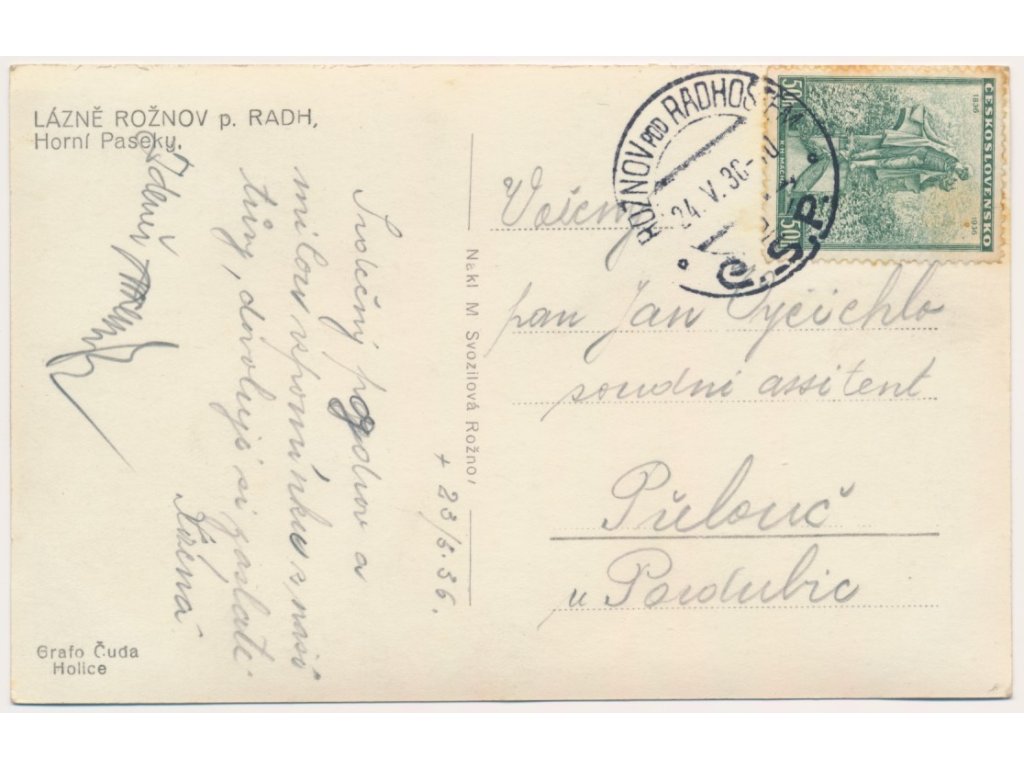 LÁZNĚ ROŽNOV p. RADH,
Horní Paseky.
Srdečný pozdrav a
milou vzpomínku z naší
túry, dovoluji si zaslati
Růžena
Zdeněk
+ 23/5.36.
Grafo Čuda
Holice
Nakl M Svozilová Rožnov
ROŽNOV POD RADHOŠTĚM
24. V. 36
Č.S.P.
ČESKOSLOVENSKO
1836
1936
50h
50h
K. H. MÁCHA
Vážený
pan Jan Vyčichlo
soudní assitent
Přelouč
u Pardubic